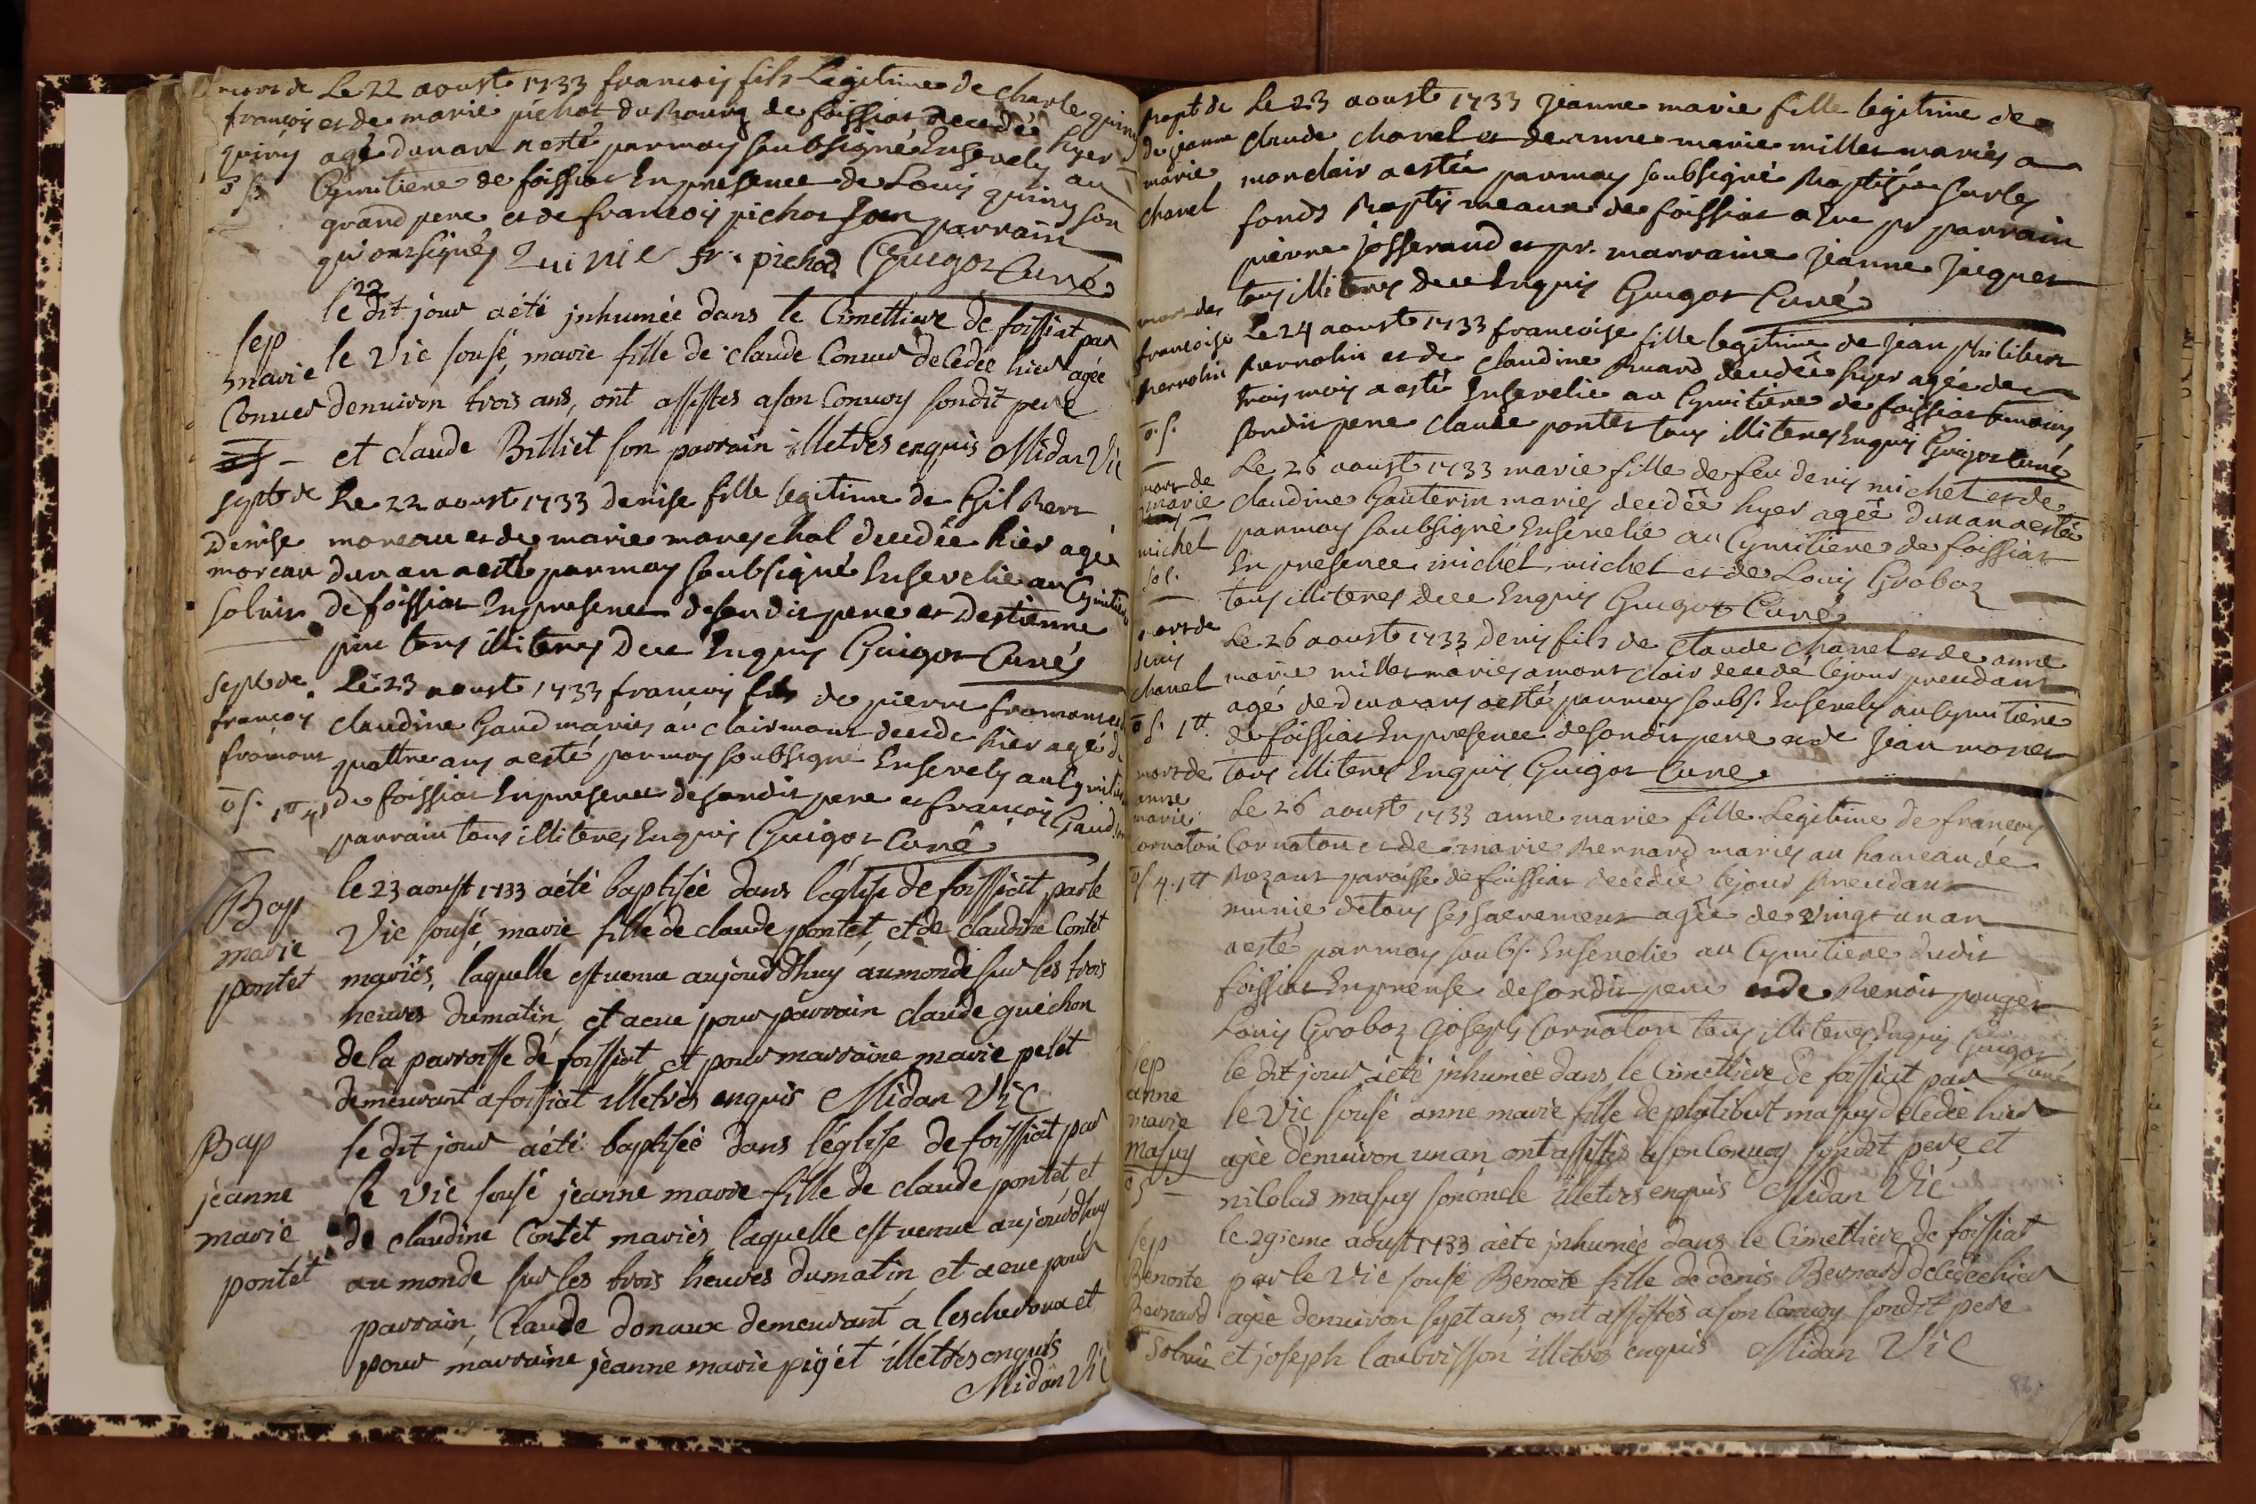 mort de Le 22 aoust 1733 francois fils Legitime de Charle quiny
françois et de marie pichot du Bourg de foissiat decedé hyer
quiny agé dunan a esté par moy soubsigné Ensevely au
Cymitiere de foissiat En presence de Louis quiny son
grand pere et de francois pichot son parrain
qui ont signés Quinie fr. pichod Guigot Curé
le dit jour 22 a été jnhumée dans le Cimettiere de foissiat par
sep
marie le Vic sousé marie fille de claude Convert decedée hier agée
Convert denviron trois ans, ont assistes a son Convoy sondit pere
et claude Billiet son parrain illetres enquis Midan Vic
sept de Le 22 aoust 1733 denise fille legitime de Gilbert
Denise moreau et de marie mareschal decedée hier agée
moreau dun an a esté par moy soubsigné Ensevelie au Cymitiere
solvit de foissiat En presence de son dit pere et Destienne
tous illiteres De ce Enquis Guigot Curé
sept de Le 23 aoust 1733 francois fils de pierre fromont et
françois claudine Gaud maries au clairmont decedé hier agé de
fromont quattre ans a esté par moy soubsigné Ensevely au Cymitiere
de foissiat En presence de son dit pere et francois Gaud son
parrain tous illiteres Enquis Guigot Curé
le 23 aoust 1733 a été baptisée dans l'églisse de foissiat par le
Bap
marie Vic sousé marie fille de claude pontet, et de claudine Contet
pontet mariés, laquelle est venue aujourd'huy au monde sur les trois
heures du matin, et a eue pour parrain claude guéchon
de la parroisse de foissiat, et pour marraine marie pelet
demeurant a foissiat illetrés enquis Midan Vic
Bap le dit jour a été baptisée dans l'églisse de foissiat par
jeanne le Vic sousé jeanne marie fille de claude pontet et
marie de claudine Contet mariés laquelle est venue aujourd'huy
pontet au monde sur les trois heures du matin, et a eue pour
parrain, Claude donaux demeurant a leschevoux et
pour marraine jeanne marie pigét illetrés enquis
Midan Vic
Bapt de Le 23 aoust 1733 Jeanne marie fille legitime de
de jeanne claude chanel et de anne marie millet mariés a
marie monclair a esté par moy soubsigné Baptisée sur les
chanel fonds Baptismeaux de foissiat a Eu pr parrain
pierre josserand et pr. marraine jeanne jacquet
tous illiteres De ce Enquis Guigot Curé
mort de Le 24 aoust 1733 francoise fille legitime de Jean philibert
francoise
perrolin et de Claudine Buard decedée hyer agée de
trois mois a esté Ensevelie au Cymitiere de foissiat temoins
son dit pere Claude pontet tous illiteres Enquis Guigot Curé
mort de Le 26 aoust 1733 marie fille de feu denis michel et de
marie Claudine Gauterin mariés decedée hyer agée dun an a esté
michel par moy soubsigné Ensevelie au Cymitiere de foissiat
sol. En presence michel michel et de Louis Groboz
tous illiteres de ce Enquis Guigot Curé
mort de Le 26 aoust 1733 denis fils de Claude Chanel et de anne
denis
chanel marie millet mariés a mont clair decedé le jour precedant
agé de deux ans a esté par moy soubs. Ensevely au Cymitiere
de foissiat En presence de son dit pere et de Jean monet
mort de tous illiteres Enquis Guigot Curé
anne
marie Le 26 aoust 1733 anne marie fille Legitime de francois
Cornaton Cornaton et de marie Bernard mariés au hameau de
Rozant paroisse de foissiat decedée le jour precedant
munie de tous ses sacremens agée de vingt un an
a esté par moy soubs. Ensevelie au Cymitiere dudit
foissiat En presense de son dit pere et de Benoit puget
Louis Groboz Joseph Cornaton tous illiteres Enquis Guigot
Curé
sep le dit jour a été jnhumée dans le Cimettiere de foissiat par
anne
marie le Vic sousé anne marie fille de philibert masuy decedée hier
masuy agée denviron un an ont assistés a son Convoy sondit pere et
nicolas masuy son oncle illetres enquis Midan Vic
sep le 29ieme aoust 1733 a été jnhumée dans le Cimettiere de foissiat
Benoite par le Vic sousé Benoite fille de denis Bernard decedée hier
Bernard agée denviron sept ans, ont assistés a son Convoy sondit pere
Solvit et joseph Laubrisson illetres enquis Midan Vic